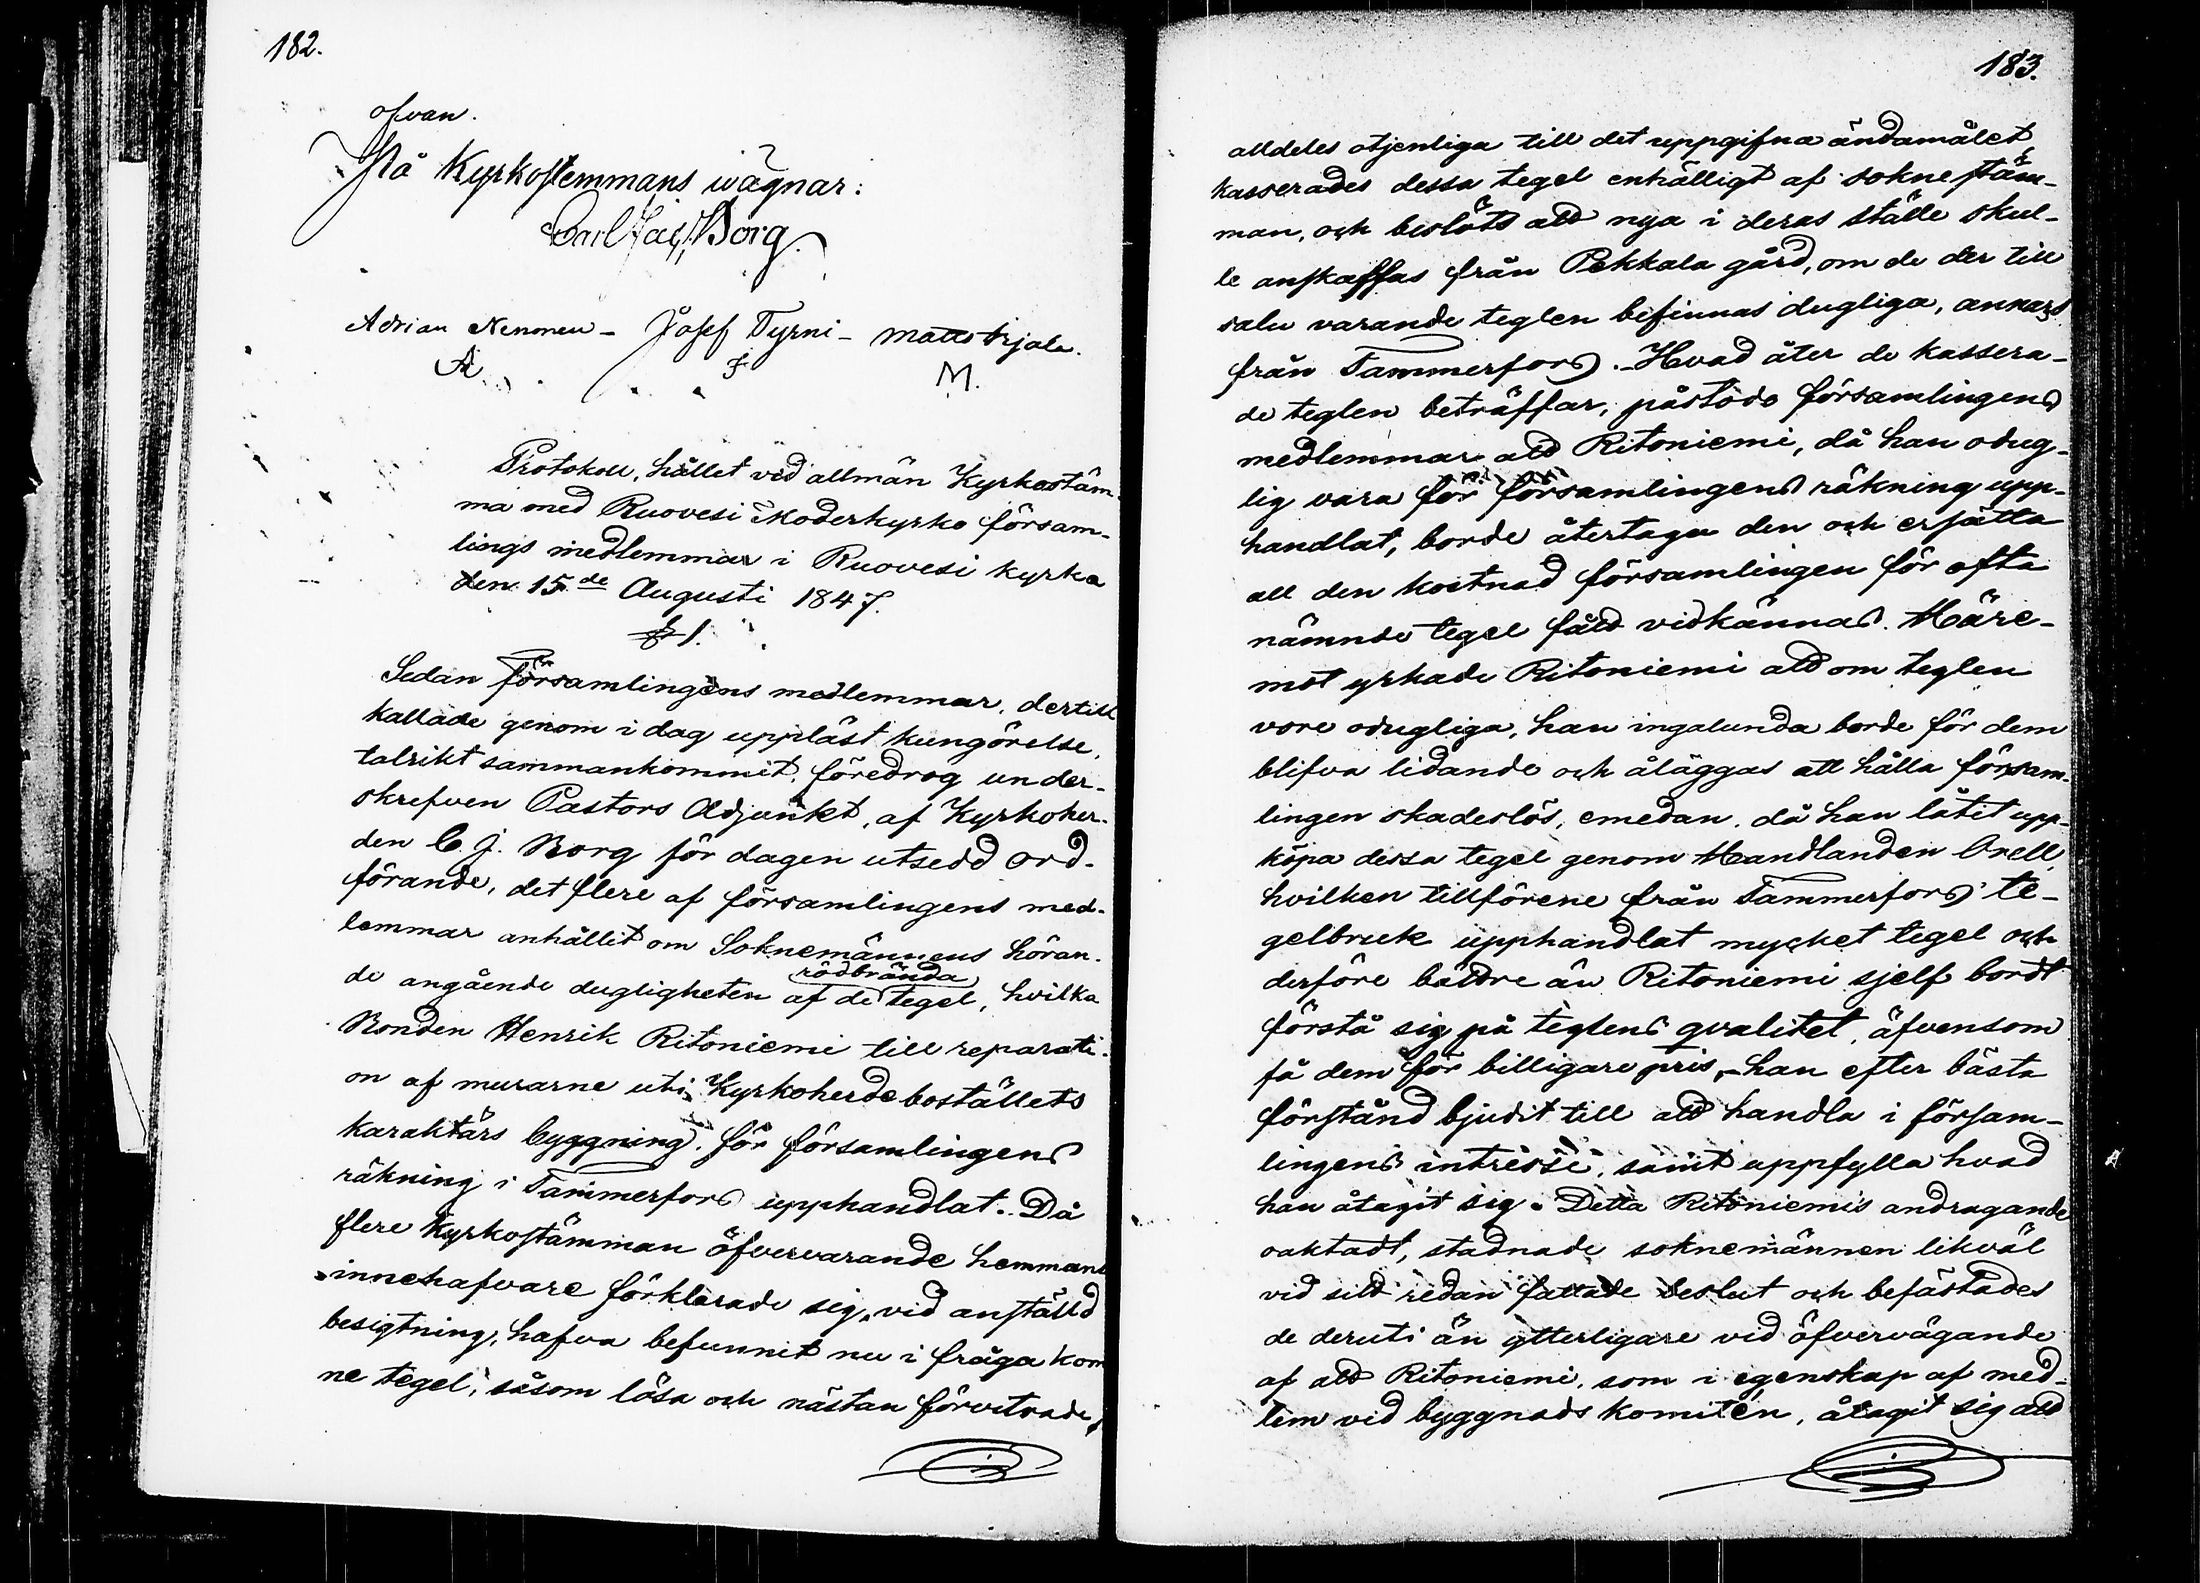 182.
ofvan.
På Kyrkostemmans wägnar:
Carl Borg.
Adrian Nenonen – Josef Tyrni – Matts Irjala.
A J M.
Protokoll, hållet vid allmän Kyrkostäm-
ma med Ruovesi Moderkyrko försam-
lings medlemmar i Ruovesi kyrka
den 15de Augusti 1847.
§ 1.
Sedan församlingens medlemmar, dertill
kallade genom i dag uppläst kungörelse,
talrikt sammankommit, föredrog under-
skrefven Pastors Adjunkt, af Kyrkoher-
den C. J. Borg för dagen utsedd ord-
förande, det flere af församlingens med-
lemmar anhållit om Soknemännens höran-
de angående dugligheten af de rödbrända tegel, hvilka
Bonden Henrik Ritoniemi till reparati-
on af murarne uti Kyrkoherdebostället
karaktärs byggning, för församlingens
räkning i Tammerfors upphandlat. Då
flere Kyrkostämman öfvervarande hemmans
innehafvare förklarade sig, vid anstäld
besigtning, hafva befunnit nu i fråga kom
ne tegel, såsom lösa och nästan förvitrade,
183.
alldeles otjenliga till det uppgifna ändamålet,
kasserades dessa tegel enhälligt af soknestäm-
man, och beslöts att nya i deras ställe skul-
le anskaffas från Pekkala gård, om de der till
salu varande teglen befinnas dugliga, annars
från Tammerfors. – Hvad åter de kassera-
de teglen beträffar, påstodo församlingens
medlemmar att Ritoniemi, då han odug-
lig vara för församlingens räkning upp-
handlat, borde återtaga den och ersätta
all den kostnad församlingen för ofta
nämnde tegel fått vidkännas. Häre-
mot yrkade Ritoniemi att om teglen
vore odugliga, han ingalunda borde för dem
blifva lidande och åläggas att hålla försam-
lingen skadeslös, emedan, då han låtit upp-
köpa dessa tegel genom Handlanden Orell,
hvilken tillförene från Tammerfors te-
gelbruk upphandlat mycket tegel och
derföre bättre än Ritoniemi sjelf bordt
förstå sig på teglens qvalitet, äfvensom
få dem för billigare pris, – han efter bästa
förstånd bjudit till att handla i försam-
lingens intresse, samt uppfylla hvad
han åtagit sig. Detta Ritoniemis andragande
oaktadt, stadnade soknemännen likväl
vid sitt redan fattade beslut och befästades
de deruti än ytterligare vid öfvervägande
af att Ritoniemi, som i egenskap af med-
lem vid byggnads komitén, åtagit sig att